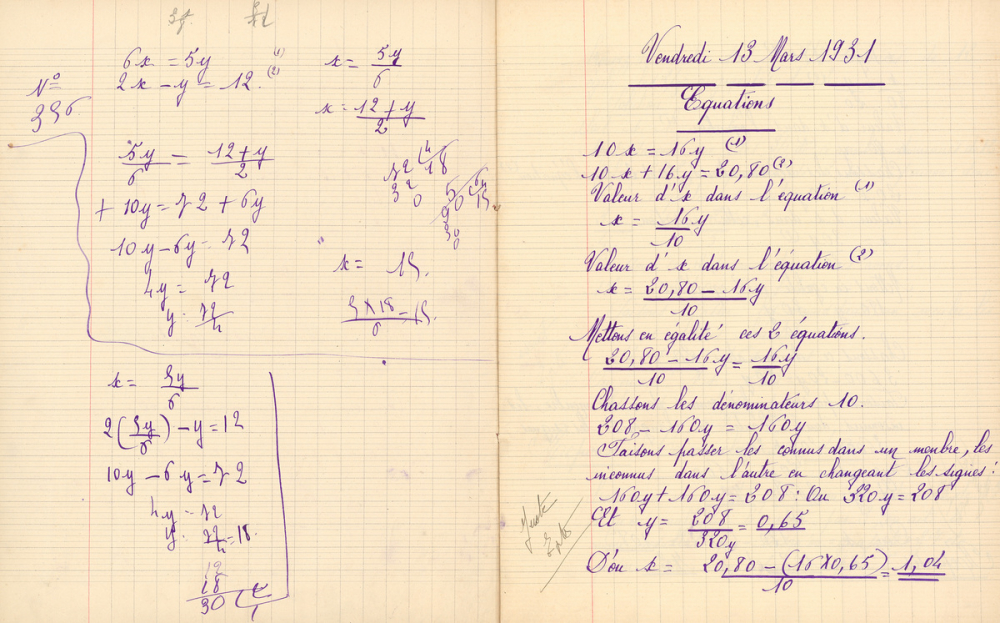 6x = 5y (1)
2x - y = 12. (2)
x = 5y/6
x = 12 + y/2
N°
396
5y/6 = 12 + y/2
+ 10y = 72 + 6y
10y - 6y = 72
4y = 72
y = 72/4
72
32
0
18
90
30
15
x = 15.
5 x 18/6 = 15.
x = 5y/6
2(5y/6) - y = 12
10y - 6y = 72
4y = 72
y = 72/4 = 18.
18
30
Vendredi 13 Mars 1931
Equations
10 x = 16y (1)
10 x + 16y = 20,80 (2)
Valeur d'x dans l'équation (1)
x = 16y/10
Valeur d'x dans l'équation (2)
x = 20,80 - 16y/10
Mettons en égalité ces 2 équations.
20,80 - 16y/10 = 16y/10
Chassons les dénominateurs 10.
208 - 160y = 160y
Faisons passer les connus dans un membre, les
inconnus dans l'autre en changeant les signes :
160y + 160y = 208 : Ou 320y = 208
Et y = 208/320y = 0,65
D'ou x = 20,80 - (16 x 0,65)/10 = 1,04
Juste